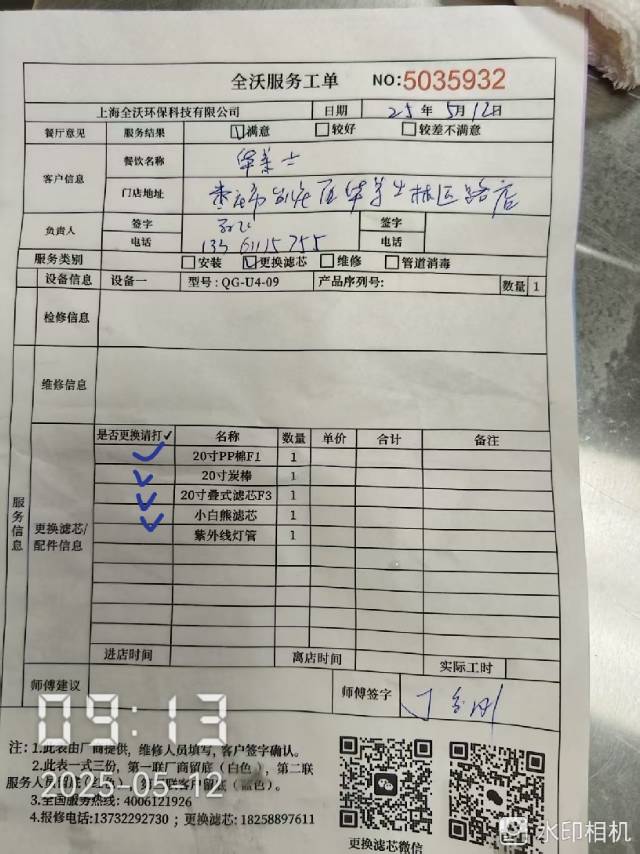 全沃服务工单 NO:5035932
上海全沃环保科技有限公司 日期 25年5月12日
餐厅意见 服务结果 ☑满意 □较好 □较差不满意
客户信息 餐饮名称 华莱士
门店地址 枣庄市 区华莱士 路店
负责人 签字 签字
电话 13561115755 电话
服务类别 □安装 ☑更换滤芯 □维修 □管道消毒
设备信息 设备一 型号:QG-U4-09 产品序列号: 数量 1
检修信息
维修信息
服务信息
更换滤芯/配件信息
是否更换请打✓ 名称 数量 单价 合计 备注
✓ 20寸PP棉F1 1
✓ 20寸炭棒 1
✓ 20寸叠式滤芯F3 1
✓ 小白熊滤芯 1
紫外线灯管 1
进店时间 离店时间 实际工时
师傅建议 师傅签字 丁 刚
09:13
注:1.此表由厂商提供,维修人员填写,客户签字确认。
2.此表一式三份,第一联厂商留底(白色),第二联
服务人员留底 第三联客户留底(蓝色)。
2025-05-12
3.全国服务热线:4006121926
4.报修电话:13732292730;更换滤芯:18258897611
更换滤芯微信
水印相机